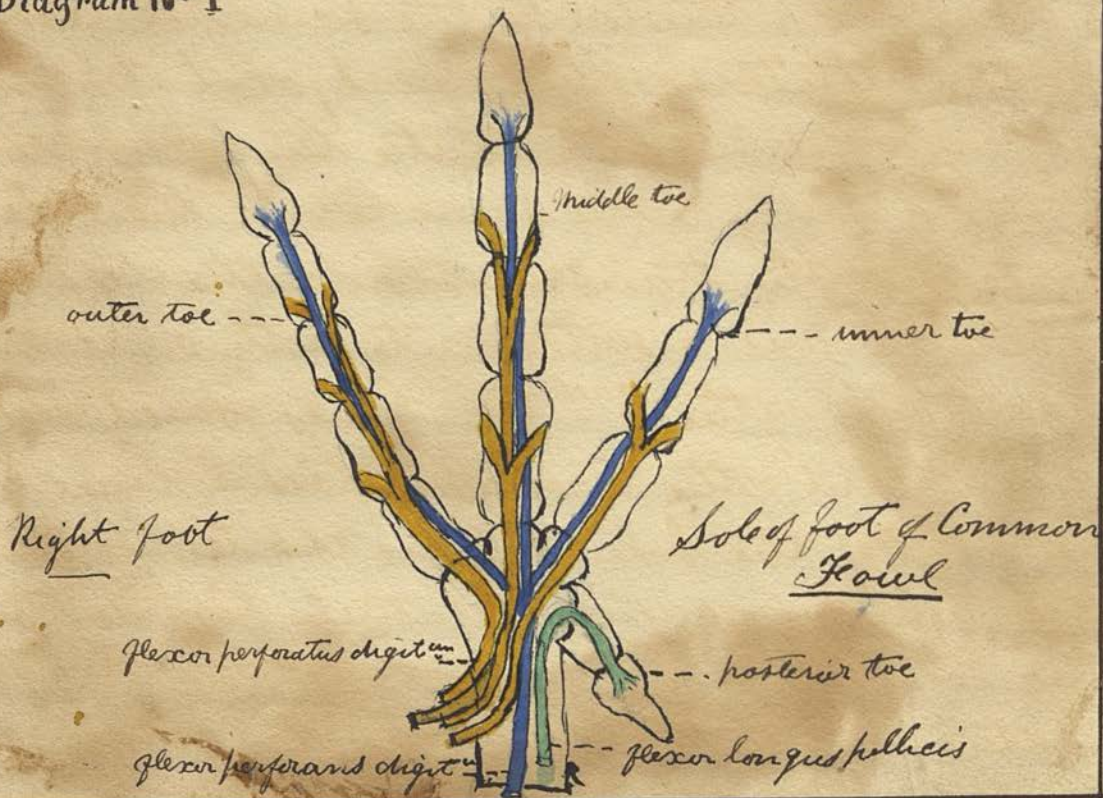 Diagram No 1
Middle toe
outer toe
inner toe
Right foot
Sole of foot of Common
Fowl
flexor perforatus digitum
posterior toe
flexor longus pollicis
flexor perforans digitum